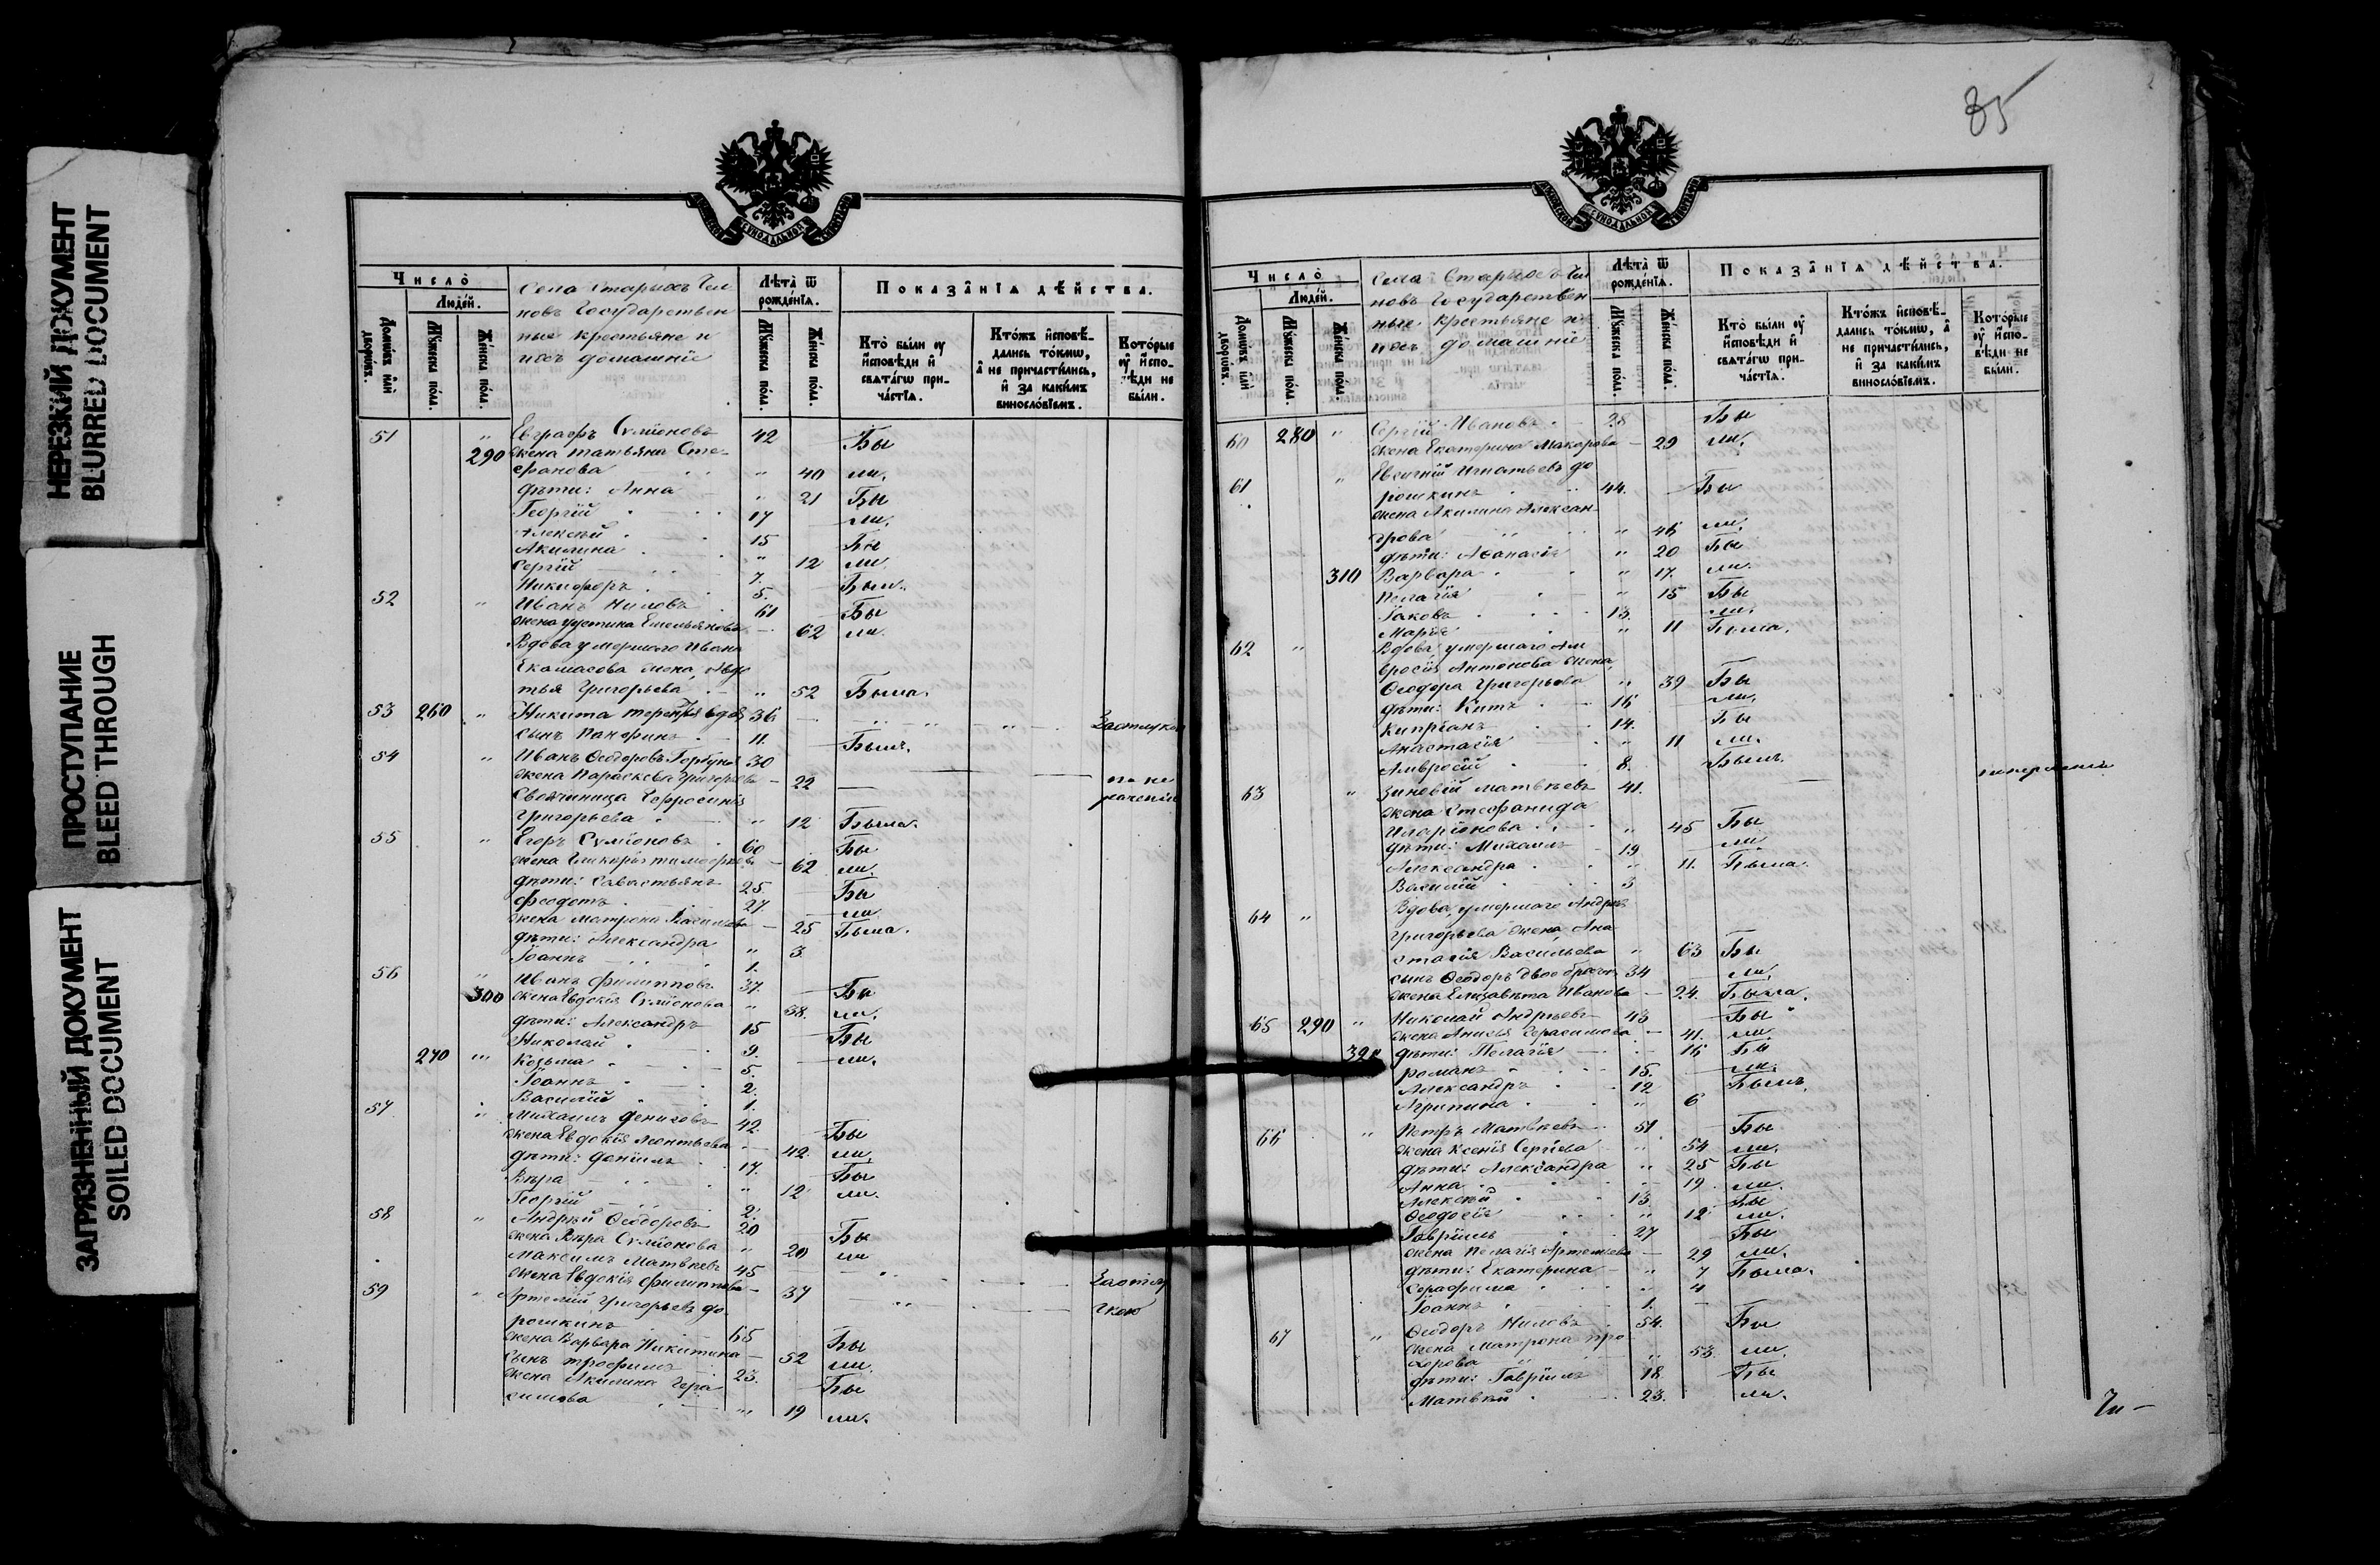 НЕРЕЗКИЙ ДОКУМЕНТ
BLURRED DOCUMENT
ПРОСТУПАНИЕ
BLEED THROUGH
ЗАГРЯЗНЕННЫЙ ДОКУМЕНТ
SOILED DOCUMENT
Число̀
Людéй.
Домѡвъ илѝ дворѡвъ.
Мꙋжеска полꙋ.
Женска полꙋ.
Села Старыхъ Чел
новъ Государствен
ные крестьяне и
ихъ домашніе
Лѣта̀ ѿ рождéнїѧ.
Мꙋжеска полꙋ.
Женска полꙋ.
Показáнїѧ дѣ́йства.
Ктò были оу исповѣди и свѧтáгѡ причáстїѧ.
Ктóжъ исповѣдались тóкмѡ, а не причастились, и за какимъ винослóвїемъ.
Котóрые оу исповѣди не были.
51 " Евграфъ Сумїоновъ 42 Бы
290 жена Татьяна Сте-
фанова " 40 ли.
дѣти: Анна " 21 Бы
Георгій 17 ли.
Алексѣй 15 Бы
Акилина " 12 ли
Сергій 7.
Никифоръ 5. Были.
52 " Иванъ Ниловъ 61 Бы
жена Устина Емельянова 62 ли.
Вдова умершаго Ивана
Екамасова жена, Авдо
тья Григорьева " 52 Была.
53 260 " Никита Терентїя вдов 36
сынъ Панфилъ 11. Былъ.
54 " Иванъ Ѳеодоровъ Горбуновъ 30
жена Параскева Григорьева 22 по не
Своячиница Ефросинія
Григорьева " 12 Была.
55 " Егоръ Сумїоновъ 60 Бы
жена Гликерія Тимоѳеева 62 ли.
дѣти: Савастьянъ 25 Бы
Феодотъ 27. ли
жена Матрона Васильева 25 Была.
дѣти: Александра " 3
Іоаннъ 1.
56 " Иванъ Филипповъ 37. Бы
300 жена Евдокія Сумїонова " 38. ли.
дѣти: Александръ 15 Бы
Николай 9. ли.
270 " Козьма 5.
Іоаннъ 2.
Василій 1.
57 " Михаилъ Денисовъ 42. Бы
жена Евдокія Леонтьева 42. ли.
дѣти: Даніилъ 17. Бы
Вѣра " 12 ли.
Георгій 2.
58 " Андрей Ѳеодоровъ 20 Бы
жена Вѣра Сумїонова " 20 ли
Максимъ Матвѣевъ 45
жена Евдокія Филиппова 37
59 " Артемій Григорьевъ До
рошкинъ 65 Бы
жена Варвара Никитина 52 ли.
Сынъ Трофимъ 23. Бы
жена Акилина Гера
симова " 19 ли.
85
Число̀
Людéй.
Домѡвъ илѝ дворѡвъ.
Мꙋжеска полꙋ.
Женска полꙋ.
Села Старыхъ Чел
новъ Государствен
ные крестьяне и
ихъ домашніе
Лѣта̀ ѿ рождéнїѧ.
Мꙋжеска полꙋ.
Женска полꙋ.
Показáнїѧ дѣ́йства.
Ктò были оу исповѣди и свѧтáгѡ причáстїѧ.
Ктóжъ исповѣдались тóкмѡ, а не причастились, и за какимъ винослóвїемъ.
Котóрые оу исповѣди не были.
60 280 " Сергій Ивановъ 28 Бы
жена Екатерина Макарова 29 ли.
61 " Евсигній Игнатьевъ До
рошкинъ 44. Бы
жена Акилина Алексан
дрова " 46 ли.
дѣти: Аѳанасія " 20 Бы
310 Варвара " 17. ли.
Пелагія " 15 Бы
Іаковъ 13. ли.
Марія " 11 Была.
62 " Вдова умершаго Ам
вросія Антонова жена,
Ѳеодора Григорьева " 39 Бы
дѣти: Китъ 16 ли.
Кипріанъ 14. Бы
Анастасія " 11 ли.
Амвросій 8. Былъ.
63 " Зиновій Матвѣевъ 41.
жена Стефанида
Иларіонова " 45 Бы
дѣти: Михаилъ 19 ли.
Александра " 11. Была.
Василій 3
64 " Вдова, умершаго Андрея
Григорьева жена, Ана
стасія Васильева " 63 Бы
сынъ Ѳеодоръ двоебрачн. 34 ли.
жена Елизавета Иванова 24. Была.
65 290 " Николай Андреевъ 43 Бы
жена Анисья Герасимова 41. ли.
320 дѣти: Пелагія 16 Бы
Романъ 15. ли.
Александръ 12 Былъ.
Агрипина " 6
66 " Петръ Матвѣевъ 51 Бы
жена Ксенія Сергіева " 54 ли.
дѣти: Александра " 25 Бы
Анна " 19. ли.
Алексѣй 13. Бы
Ѳеодосія " 12 ли.
Гавріилъ 27 Бы
жена Пелагія Артемьева 29 ли.
дѣти: Екатерина " 7 Была.
Серафима 4
Іоаннъ 1.
67 " Ѳеодоръ Ниловъ 54. Бы
жена Матрона Про
хорова " 53. ли.
дѣти: Гавріилъ 18. Бы
Матвѣй 23. ли.